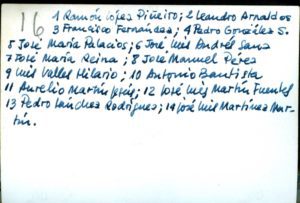 16
1 Ramón López Piñeiro; 2 Leandro Arnaldos
3 Francisco Fernández; 4 Pedro González S.
5 José María Palacios; 6 José Luis Andrés Sanz
7 José María Reina; 8 José Manuel Pérez
9 Luis Valles Hilario; 10 Antonio Bautista
11 Aurelio Martín; 12 José Luis Martín Fuentel
13 Pedro Sánchez Rodríguez; 14 José Luis Martínez Mar-
tín.